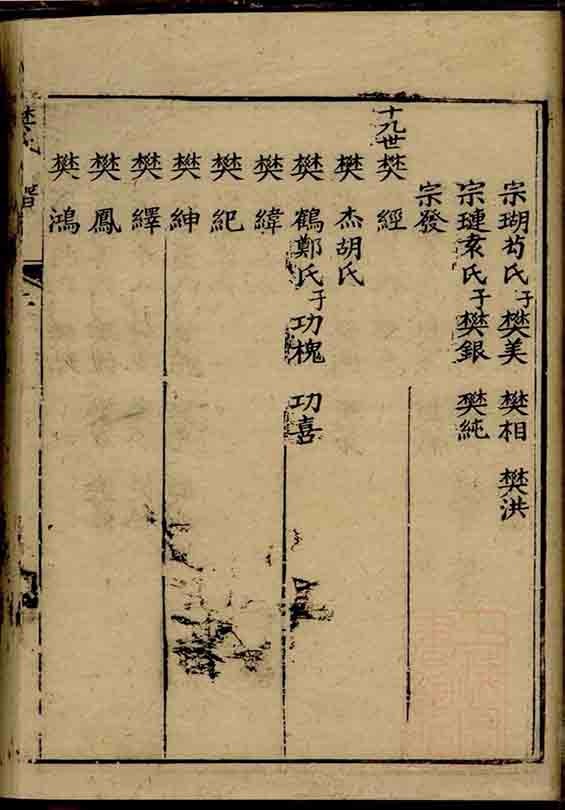 宗瑚芶氏子樊美 樊相 樊洪
宗璉袁氏子樊銀 樊純
宗發
十九世樊經
樊杰胡氏
樊鶴鄭氏子功槐 功喜
樊緯
樊紀
樊紳
樊繹
樊鳳
樊鴻